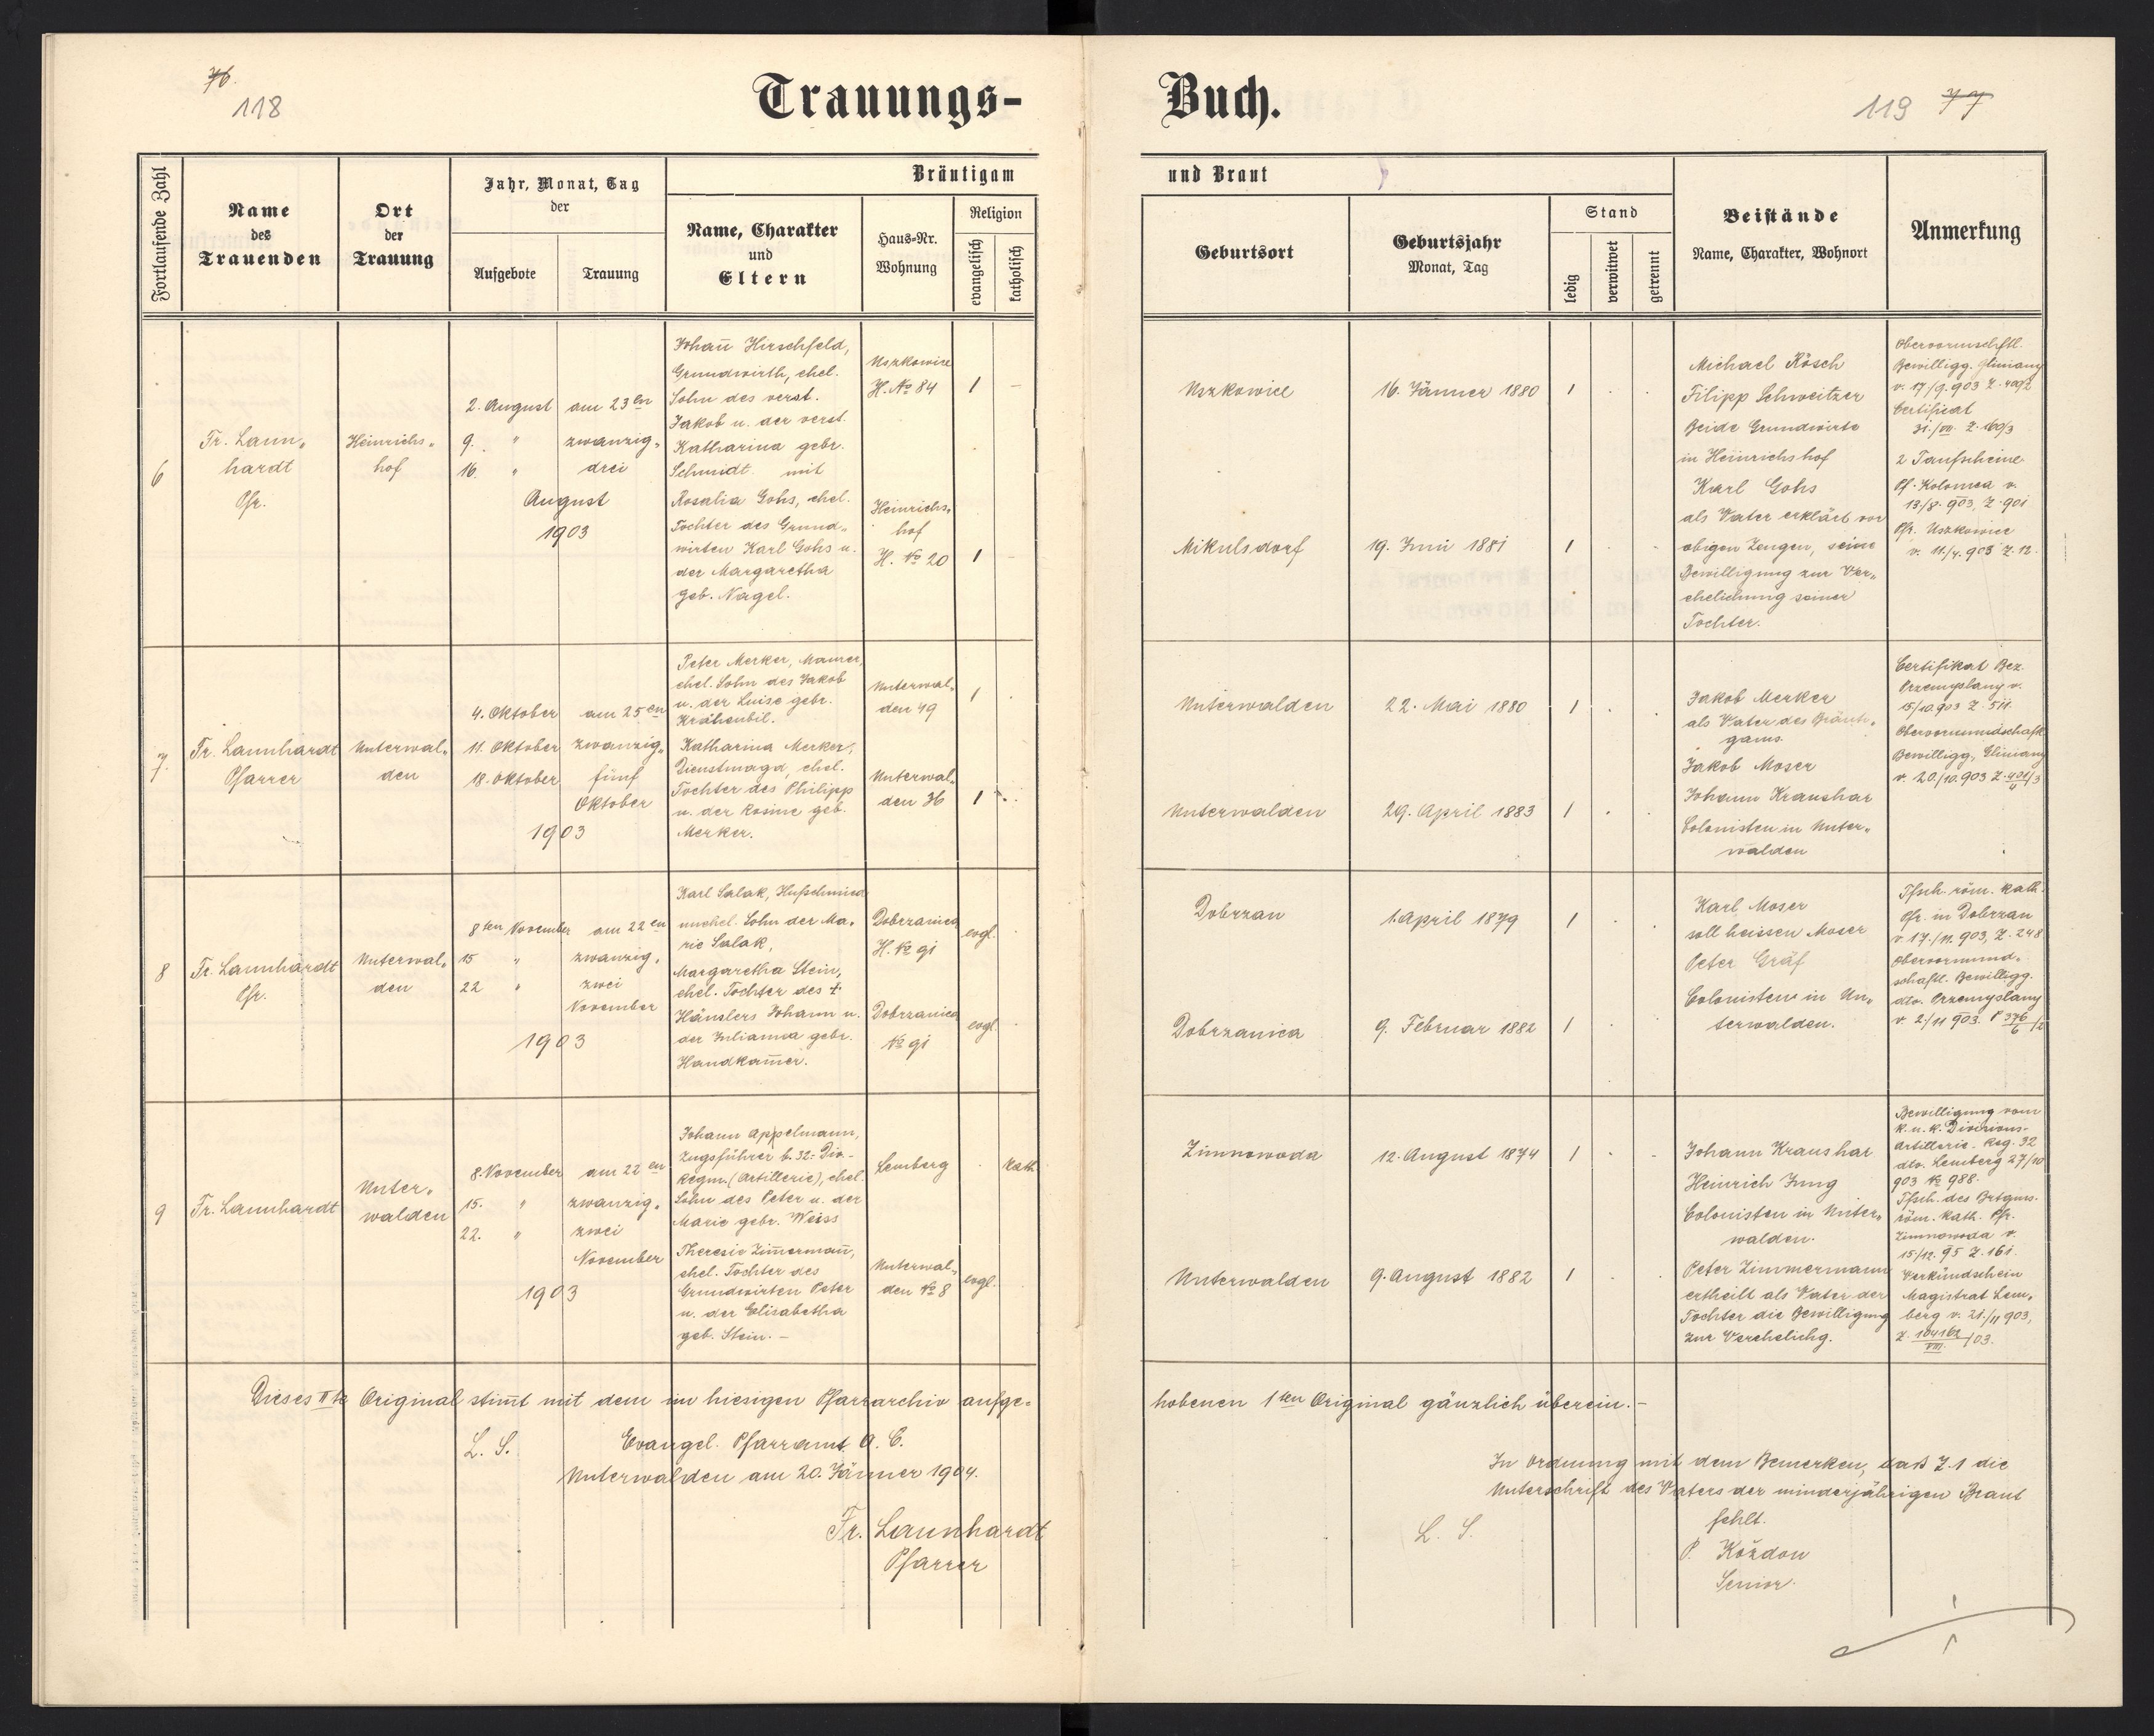 76.
118
Trauungs-
Buch.
119 77
Fortlaufende Zahl
Name
des
Trauenden
Ort
der
Trauung
Jahr, Monat, Tag
der
Aufgebote
Trauung
Bräutigam
Name, Charakter
und
Eltern
Haus-Nr.
Wohnung
Religion
evangelisch
katholisch
und Braut
Geburtsort
Geburtsjahr
Monat, Tag
Stand
ledig
verwitwet
getrennt
Beistände
Name, Charakter, Wohnort
Anmerkung
6
Fr. Laun„
hardt
Pfr.
Heinrichs„
hof
2. August
9. "
16. "
am 23en
zwanzig„
drei
August
1903
Johañ Hirschfeld,
Grundwirth, ehel.
Sohn des verst.
Jakob u. der verst.
Katharina gebr.
Schmidt mit
Rosalia Gohs, ehel.
Tochter des Grund„
wirten Karl Gohs u.
der Margaretha
geb. Nagel.
Uszkowice
H. No 84
1
Heinrichs„
hof
H. No 20
1
Uszkowice
16. Jänner 1880
1
Mikulsdorf
19. Juni 1881
1
Michael Rösch
Filipp Schweitzer
Beide Grundwirte
in Heinrichshof
Karl Gohs
als Vater erklärt vor
obigen Zeugen, seine
Bewilligung zur Ver„
ehelichung seiner
Tochter.
Bewilligg. Gliniany
v. 17/9. 903 Z.
Certificat
31./VII. Z.
2 Taufscheine
Pf. Kolomea v.
13/8. 903, Z. 901
Pfr. Uszkowice
v. 11./7. 903 Z. 12.
7.
Fr. Launhardt
Pfarrer
Unterwal„
den
4. Oktober
11. Oktober
18. Oktober
am 25en
zwanzig„
fünf
Oktober
1903
Peter Merker, Maurer,
ehel. Sohn des Jakob
u. der Luise gebr.
Krähenbil.
Katharina Merker,
Dienstmagd, ehel.
Tochter des Philipp
u. der Rosine geb.
Merker.
Unterwal„
den 49
1
Unterwal„
den 36
1
Unterwalden
22. Mai 1880
1
Unterwalden
29. April 1883
1
Jakob Merker
als Vater des Bräuti„
gams
Jakob Moser
Johann Kraushar
Colonisten in Unter„
walden
Certifikat Bez.
Przemyslany v.
15/10. 903 Z. 511.
Obervormundschaft
Bewilligg. Gliniany
v. 20./10. 903 Z.
8
Fr. Launhardt
Pfr.
Unterwal„
den
8ten November
15 "
22 "
am 22en
zwanzig„
zwei
November
1903
Karl Salak, Hufschmied
unehel. Sohn der Ma„
rie Salak,
Margaretha Stein,
ehel. Tochter des †
Häuslers Johann u.
der Julianna gebr.
Handkam̄er.
Dobrzanica
H. No 91
evgl.
Dobrzanica
No 91
evgl.
Dobrzan
1. April 1879
1
Dobrzanica
9. Februar 1882
1
Karl Moser
soll heissen Moser
Peter Gräf
Colonisten in Un„
terwalden.
Tfsch. röm. kath.
Pfr. in Dobrzan
v. 17./11. 903, Z. 248
Obervormund„
schaftl. Bewilligg.
dto. Przemyslany
v. 2/11 903. P 376/6 /2
9
Fr. Launhardt
Unter„
walden
8. November
15. "
22. "
am 22en
zwanzig„
zwei
November
1903
Johann Appelmann,
Zugsführer b. 32. Div.-
Regm. (Artillerie), ehel.
Sohn des Peter u. der
Marie gebr. Weiss
Theresie Zim̄ermañ,
ehel. Tochter des
Grundwirten Peter
u. der Elisabetha
geb. Stein. –
Lemberg
kath
Unterwal„
den No 8
evgl.
Zimnowoda
12. August 1874
1
Unterwalden
9. August 1882
1
Johann Kraushar
Heinrich Jung
Colonisten in Unter„
walden.
Peter Zimmermann
ertheilt als Vater der
Tochter die Bewilligung
zur Verehelichg.
Bewilligung vom
k. u. k. Divisions-
Artillerie. Reg. 32
dto. Lemberg 27/10
903 No 988.
Tfsch. des Brtgms.
röm. kath. Pfr.
Zimnowoda v.
15/12. 95 Z. 161.
Verkündschein
Magistrat Lem„
berg v. 21./11 903,
Z. 104162/VIII. /03.
Dieses IIte Original stim̄t mit dem im hiesigen Pfarrarchiv aufge-
hobenen 1ten Original gänzlich überein. –
L. S.
Evangel. Pfarramt A. C.
Unterwalden am 20. Jänner 1904.
Fr. Launhardt
Pfarrer
In Ordnung mit dem Bemerken, daß Z. 1 die
Unterschrift des Vaters der minderjährigen Braut
fehlt.
L. S.
P. Kożdon
Senior.